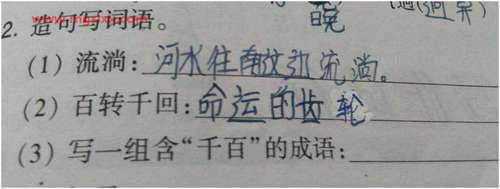 2. 造句写词语。
(1) 流淌: 河水往南放弘流淌。
(2) 百转千回: 命运的齿轮
(3) 写一组含“千百”的成语: